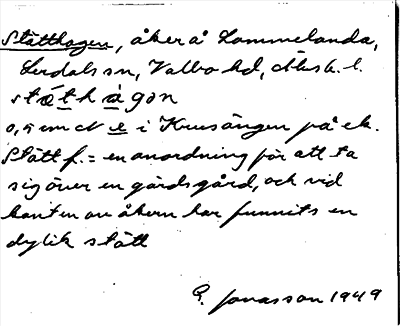 Stätthagen, åker å Lommelanda,
Lerdals sn, Valbo hd, Älvsb. l.
stæ̀th à gən
0,5 cm N e i Krusängen på ek.
Stätt f. = en anordning för att ta
sig över en gärdsgård, och vid
kanten av åkern har funnits en
dylik stätt
G. Jonasson 1949